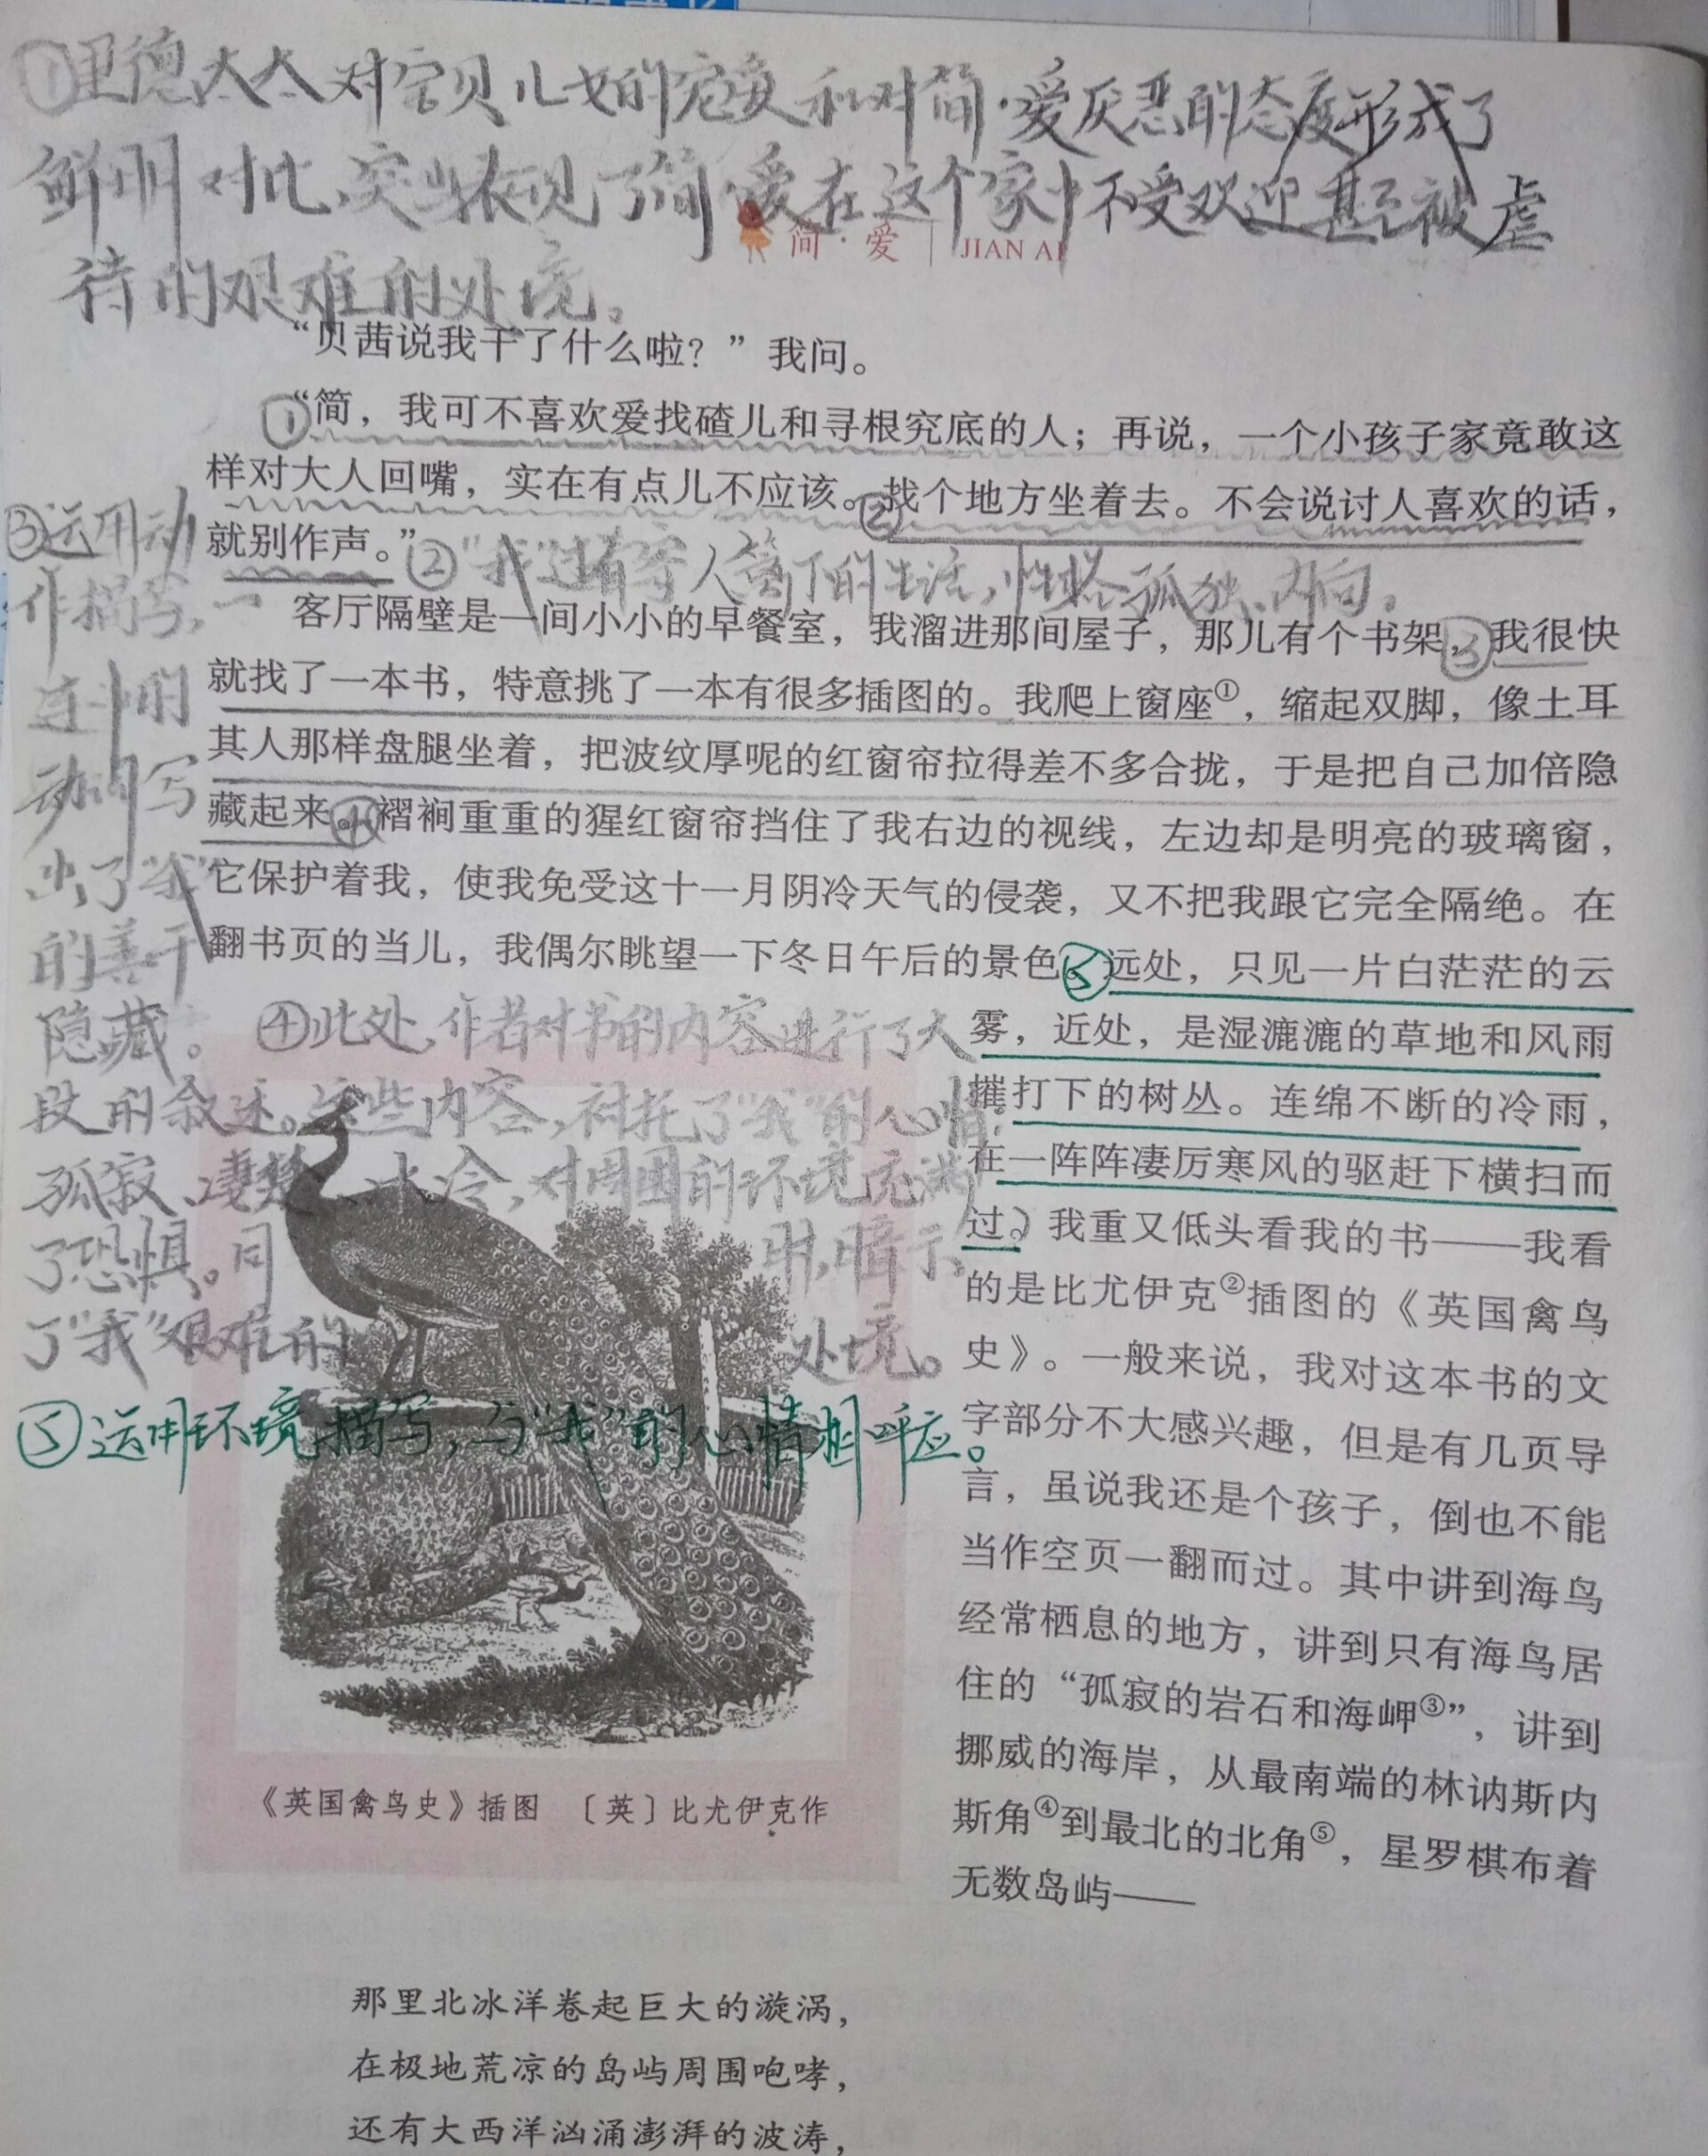 ①里德太太对宝贝儿女的宠爱和对简·爱厌恶的态度形成了
鲜明对比,突出表现了简·爱在这个家中不受欢迎甚至被虐
待的艰难的处境。
简·爱 | JIAN AI
“贝茜说我干了什么啦？”我问。
①“简，我可不喜欢爱找碴儿和寻根究底的人；再说，一个小孩子家竟敢这
样对大人回嘴，实在有点儿不应该。②找个地方坐着去。不会说讨人喜欢的话，
就别作声。”
②“我”过着寄人篱下的生活,性格孤独、内向。
客厅隔壁是一间小小的早餐室，我溜进那间屋子，那儿有个书架，③我很快
就找了一本书，特意挑了一本有很多插图的。我爬上窗座①，缩起双脚，像土耳
其人那样盘腿坐着，把波纹厚呢的红窗帘拉得差不多合拢，于是把自己加倍隐
藏起来。④褶裥重重的猩红窗帘挡住了我右边的视线，左边却是明亮的玻璃窗，
它保护着我，使我免受这十一月阴冷天气的侵袭，又不把我跟它完全隔绝。在
翻书页的当儿，我偶尔眺望一下冬日午后的景色。⑤远处，只见一片白茫茫的云
雾，近处，是湿漉漉的草地和风雨
摧打下的树丛。连绵不断的冷雨，
在一阵阵凄厉寒风的驱赶下横扫而
过。）我重又低头看我的书——我看
的是比尤伊克②插图的《英国禽鸟
史》。一般来说，我对这本书的文
字部分不大感兴趣，但是有几页导
言，虽说我还是个孩子，倒也不能
当作空页一翻而过。其中讲到海鸟
经常栖息的地方，讲到只有海鸟居
住的“孤寂的岩石和海岬③”，讲到
挪威的海岸，从最南端的林讷斯内
斯角④到最北的北角⑤，星罗棋布着
无数岛屿——
③运用动
作描写,一
连串的
动词写
出了“我”
的善于
隐藏。
④此处,作者对书的内容进行了大
段的叙述。这些内容,衬托了“我”的心情:
孤寂、凄楚、冰冷,对周围的环境充满
了恐惧。同时,暗示
了“我”艰难的处境。
⑤运用环境描写,与“我”的心情相呼应。
《英国禽鸟史》插图 〔英〕比尤伊克作
那里北冰洋卷起巨大的漩涡，
在极地荒凉的岛屿周围咆哮，
还有大西洋汹涌澎湃的波涛，